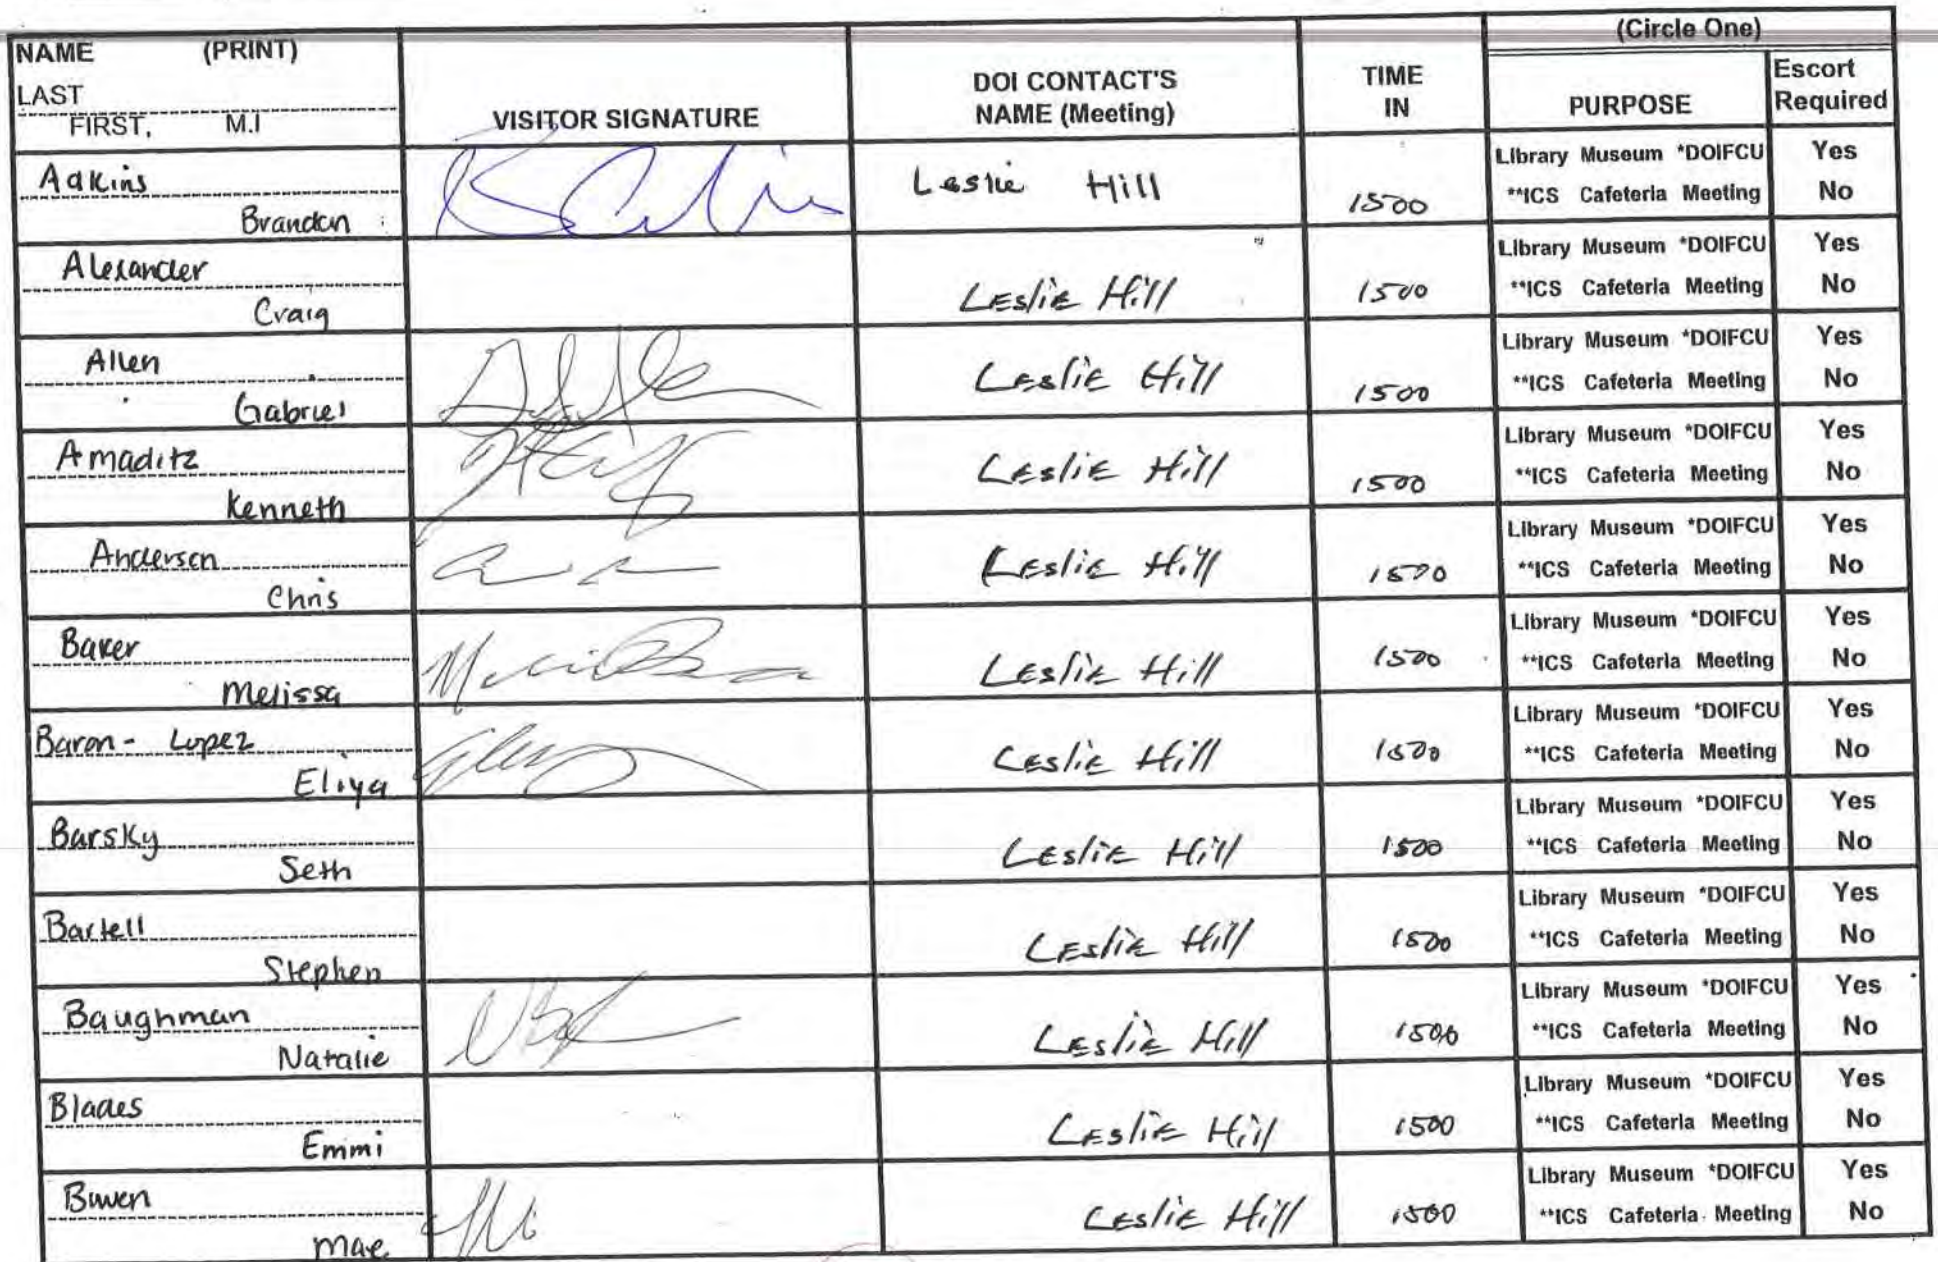 NAME (PRINT)
LAST
FIRST, M.I
VISITOR SIGNATURE
DOI CONTACT'S
NAME (Meeting)
TIME
IN
(Circle One)
PURPOSE
Escort
Required
Adkins
Brandon
Leslie Hill
1500
Library Museum *DOIFCU Yes
**ICS Cafeteria Meeting No
Alexander
Craig
Leslie Hill
1500
Library Museum *DOIFCU Yes
**ICS Cafeteria Meeting No
Allen
Gabriel
Leslie Hill
1500
Library Museum *DOIFCU Yes
**ICS Cafeteria Meeting No
Amaditz
Kenneth
Leslie Hill
1500
Library Museum *DOIFCU Yes
**ICS Cafeteria Meeting No
Anderson
Chris
Leslie Hill
1500
Library Museum *DOIFCU Yes
**ICS Cafeteria Meeting No
Baker
Melissa
Leslie Hill
1500
Library Museum *DOIFCU Yes
**ICS Cafeteria Meeting No
Baron-Lopez
Eliya
Leslie Hill
1500
Library Museum *DOIFCU Yes
**ICS Cafeteria Meeting No
Barsky
Seth
Leslie Hill
1500
Library Museum *DOIFCU Yes
**ICS Cafeteria Meeting No
Bartell
Stephen
Leslie Hill
1500
Library Museum *DOIFCU Yes
**ICS Cafeteria Meeting No
Baughman
Natalie
Leslie Hill
1500
Library Museum *DOIFCU Yes
**ICS Cafeteria Meeting No
Blades
Emmi
Leslie Hill
1500
Library Museum *DOIFCU Yes
**ICS Cafeteria Meeting No
Bowen
Mae
Leslie Hill
1500
Library Museum *DOIFCU Yes
**ICS Cafeteria Meeting No